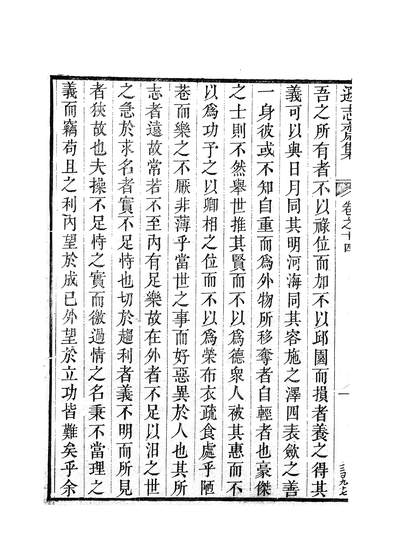 遜志齋集
卷之十四
一
吾之所有者不以祿位而加不以邱園而損者養之得其
義可以與日月同其明河海同其容施之澤四表歛之善
一身彼或不知自重而爲外物所移奪者自輕者也豪傑
之士則不然舉世推其賢而不以爲德衆人被其惠而不
以爲功予之以卿相之位而不以爲榮布衣疏食處乎陋
巷而樂之不厭非薄乎當世之事而好惡異於人也其所
志者遠故常若不至內有足樂故在外者不足以汨之世
之急於求名者實不足恃也切於趨利者義不明而所見
者狹故也夫操不足恃之實而徼過情之名秉不當理之
義而竊苟且之利內望於成已外望於立功皆難矣乎余